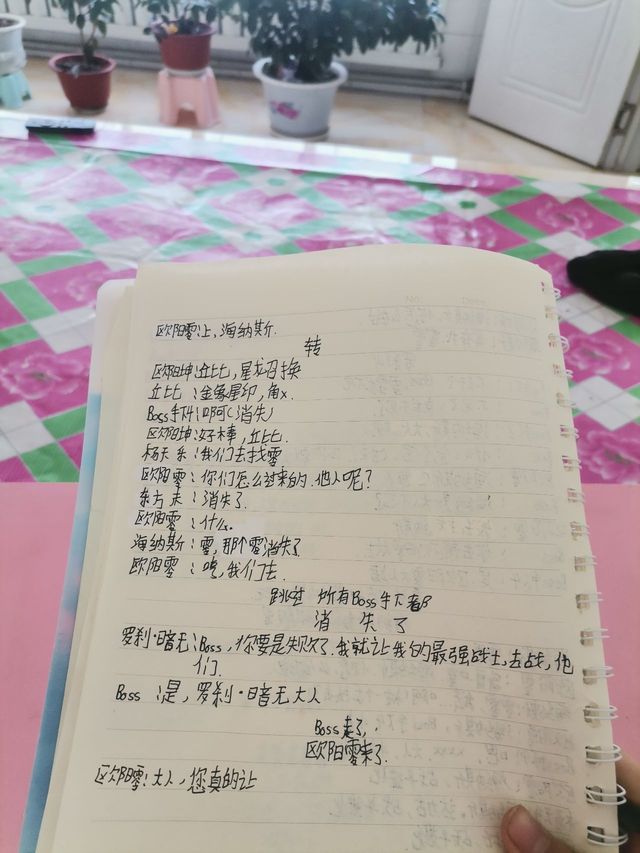 欧阳零:上,海纳斯.
转
欧阳坤:丘比,星龙召换
丘比:金象星印,角x.
Boss手下:啊(消失)
欧阳坤:好棒,丘比.
杨天乐:我们去找零
欧阳零:你们怎么过来的.他人呢?
东方末:消失了.
欧阳零:什么.
海纳斯:零,那个零消失了
欧阳零:鸣,我们去.
跳过 所有Boss手下都
消失了
罗刹·暗无:Boss,你要是失败了.我就让我的最强战士,去战,他
们.
Boss:是,罗刹·暗无大人
Boss走了,
欧阳零来了.
欧阳零:大人,您真的让